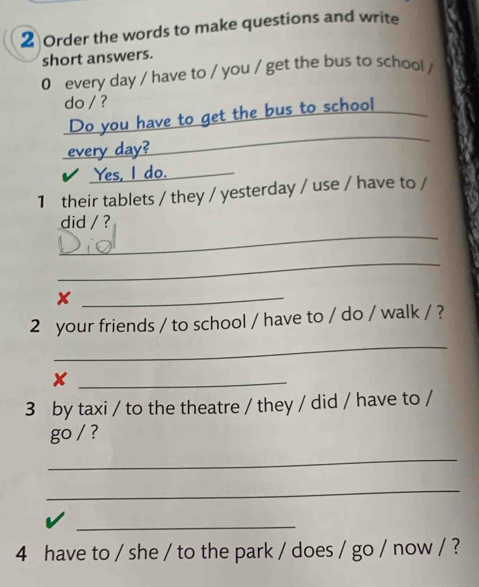 2 Order the words to make questions and write
short answers.
0 every day / have to / you / get the bus to school /
do / ?
Do you have to get the bus to school
every day?
✔ Yes, I do.
1 their tablets / they / yesterday / use / have to /
did / ?
Did
✘
2 your friends / to school / have to / do / walk / ?
✘
3 by taxi / to the theatre / they / did / have to /
go / ?
✔
4 have to / she / to the park / does / go / now / ?